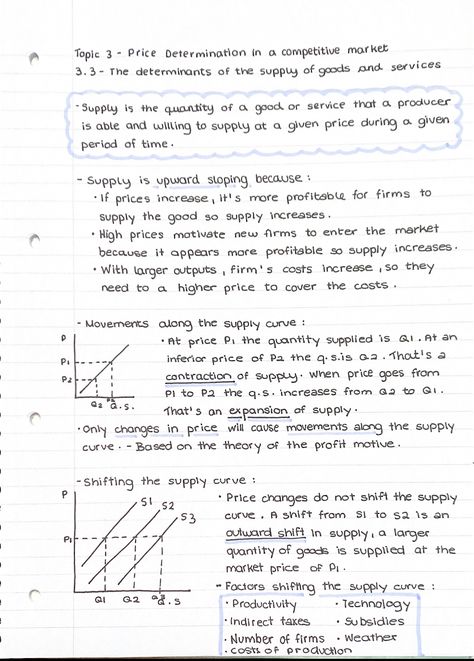 Topic 3 - Price Determination in a competitive market
3.3 - The determinants of the supply of goods and services
- Supply is the quantity of a good or service that a producer
is able and willing to supply at a given price during a given
period of time.
- Supply is upward sloping because :
• If prices increase, it's more profitable for firms to
supply the good so supply increases.
• High prices motivate new firms to enter the market
because it appears more profitable so supply increases.
• With larger outputs, firm's costs increase, so they
need to a higher price to cover the costs.
- Movements along the supply curve :
P
P1
P2
Q2
Q.S.
• At price P1 the quantity supplied is Q1. At an
inferior price of P2 the q.s. is Q2. That's a
contraction of supply. When price goes from
P1 to P2 the q.s. increases from Q2 to Q1.
That's an expansion of supply.
• Only changes in price will cause movements along the supply
curve. - Based on the theory of the profit motive.
- Shifting the supply curve :
P
S1
S2
S3
P1
Q1
Q2
Q.S
• Price changes do not shift the supply
curve. A shift from S1 to S2 is an
outward shift in supply, a larger
quantity of goods is supplied at the
market price of P1.
- Factors shifting the supply curve :
• Productivity • Technology
• Indirect taxes • Subsidies
• Number of firms • Weather
• costs of production